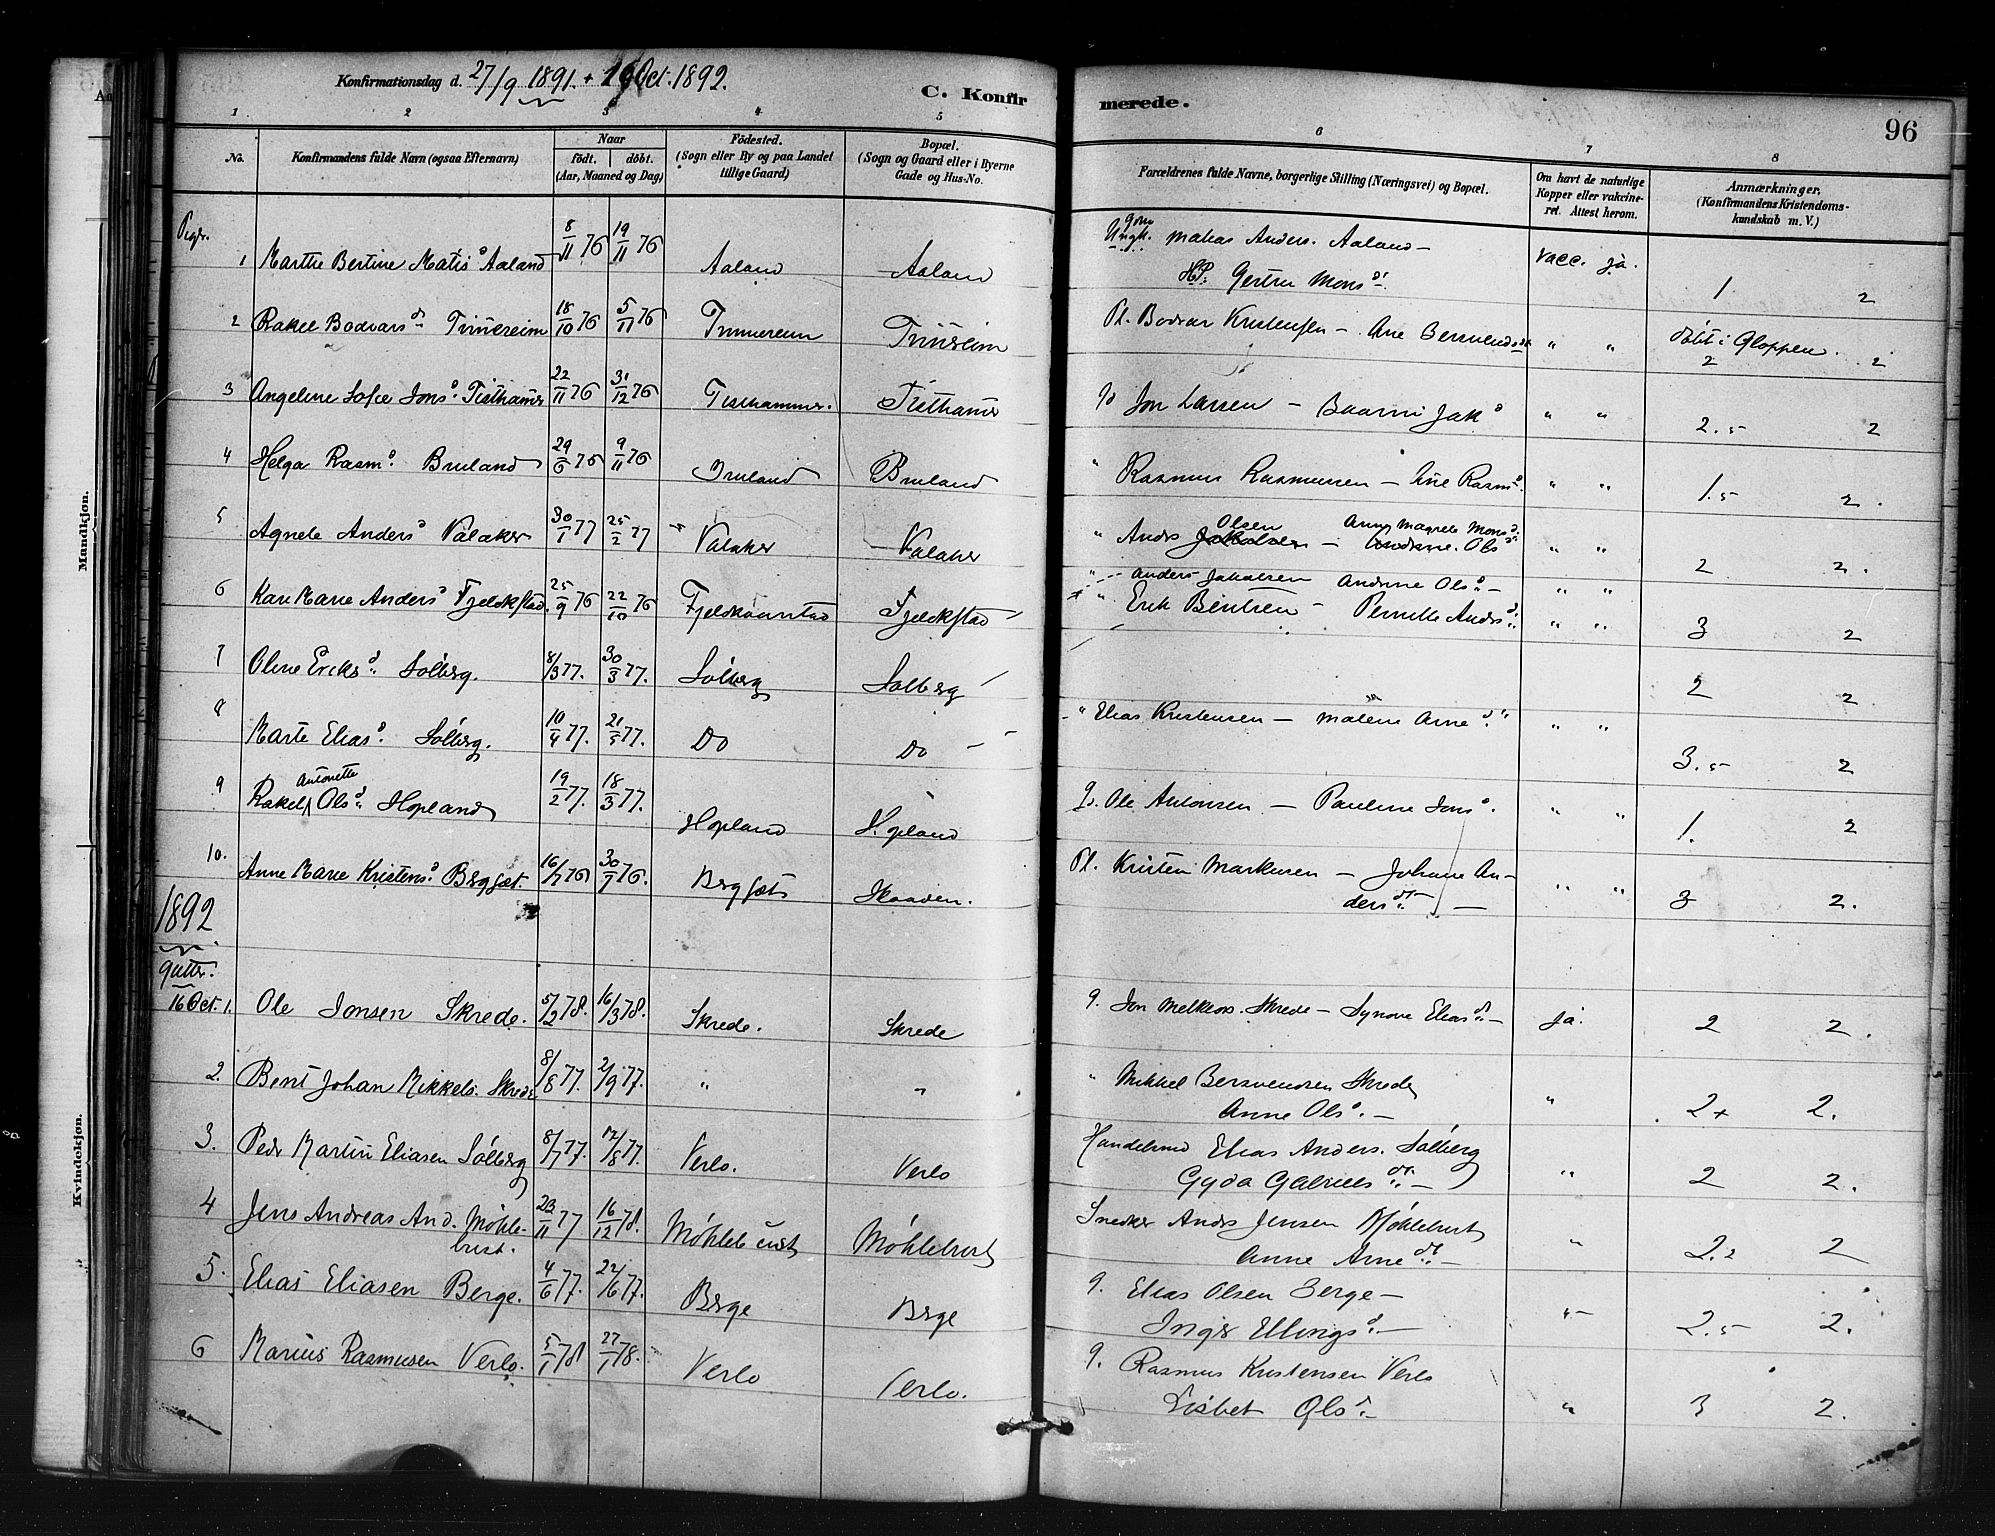 Konfirmationsdag d. 27/9 1891. + 16 Oct. 1892.
C. Konfirmerede.
96
1 2 3 4 5 6 7 8
No.
Konfirmandens fulde Navn (ogsaa Efternavn)
Naar
födt. döbt.
(Aar, Maaned og Dag)
Födested.
(Sogn eller By og paa Landet
tillige Gaard)
Bopæl.
(Sogn og Gaard eller i Byerne
Gade og Hus-No.
Forældrenes fulde Navne, borgerlige Stilling (Næringsvei) og Bopæl.
Om havt de naturlige
Kopper eller vakcine-
ret. Attest herom.
Anmærkninger.
(Konfirmandens Kristendoms-
kundskab m. V.)
Mandkjøn.
Kvindekjøn.
Piger.
1 Marthe Bertine Matis d Aaland 8/11 76 19/11 76 Aaland Aaland Ungk. Matias Anders. Aaland – vacc. ja. 1 2
Gertru Mons d.
2 Rakel Bodvars d Tvinereim 18/10 76 5/11 76 Tvinereim Tvinreim Pl. Bodvar Kristensen – Ane Bersvends d " " döbt i Gloppen. 2 2
3 Angeline Sofie Jons d. Tisthamer 22/11 76 31/12 76 Tisthammer. Tisthamer Jon Larsen – Jak d " " 2.5 2
4 Helga Rasm d. Bruland 29/6 76 9/11 76 Bruland Bruland " Rasmus Rasmussen – Ane Rasm d. " " 1.5 2.
5 Agnete Anders d Valaker 30/1 77 25/2 77 Valaker Valaker " Anders Olsen Anne Magrete Mons d. " " 2 2.
6 Kari Marie Anders d Fjeldkstad. 25/9 76 22/10 76 Fjeldkaarstad Fjeldkstad " Anders Jakobsen Andrine Ols d – " " 3 2
7 Oline Eriks d. Solberg. 8/3 77. 30/3 77. Solberg Solberg " Erik Bentsen – Pernille Anders d. " " 2 2
8 Marte Elias d. Solberg. 10/4 77. 21/5 77. Do Do " Elias Kristensen – Malene Arne d. " " 3.5 2
9 Rakel Antonette Ols d. Hopland 19/2 77. 18/3 77. Hopland Hopland G. Ole Antonsen – Pauline Jons d. " " 1. 2
10. Anne Marie Kristens d. Bergset. 16/7 76 30/7 76. Bergset Skaaden. Pl. Kristen Markusen – Johane An- " " 3 2.
ders dt –
1892
Gutter.
16 Oct. 1. Ole Jonsen Skrede. 5/2 78. 16/3 78. Skrede. Skrede G. Jon Melkiors. Skrede – Synove Elias d. – ja. 2 2.
2. Bent Johan Mikkels. Skrede 8/8 77. 2/9 77. " " " Mikkel Bersvendsen Skrede " 2+ 2.
Anne Ols d. –
3. Peder Martin Eliasen Solberg 8/7 77. 12/8 77. Verlo. Verlo Handelsmd Elias Anders. Solberg " 2 2.
Gyda Gabriels dt. –
4 Jens Andreas And. Möhle- 23/11 77 16/12 78. Möhlebust Möhlebust Snedker Anders Jensen Möhlebust " 2.2 2
bust. Anne Arne dt. –
5. Elias Eliasen Berge. 4/6 77. 22/6 77. Berge Berge G. Elias Olsen Berge – " 2.5 2.
Inger Ellings d. –
6 Marius Rasmusen Verlo. 5/1 78 27/1 78. Verlo Verlo. G. Rasmus Kristensen Verlo " 3 2.
Lisbet Ols d. –